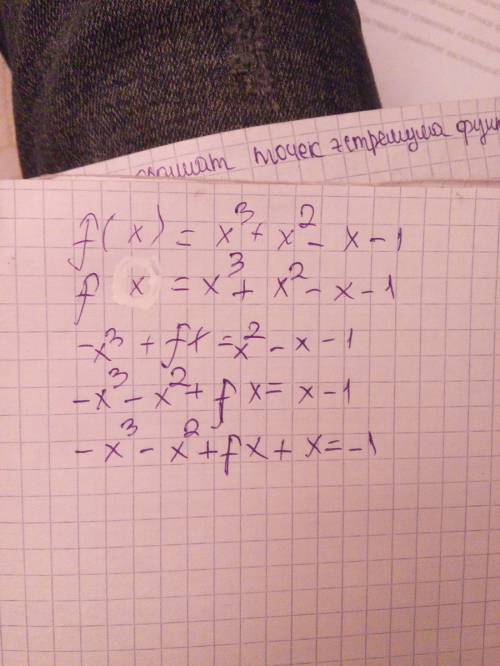 точек эстремума
f(x) = x³ + x² - x - 1
f x = x³ + x² - x - 1
-x³ + fx = x² - x - 1
-x³ - x² + f x = x - 1
-x³ - x² + fx + x = -1